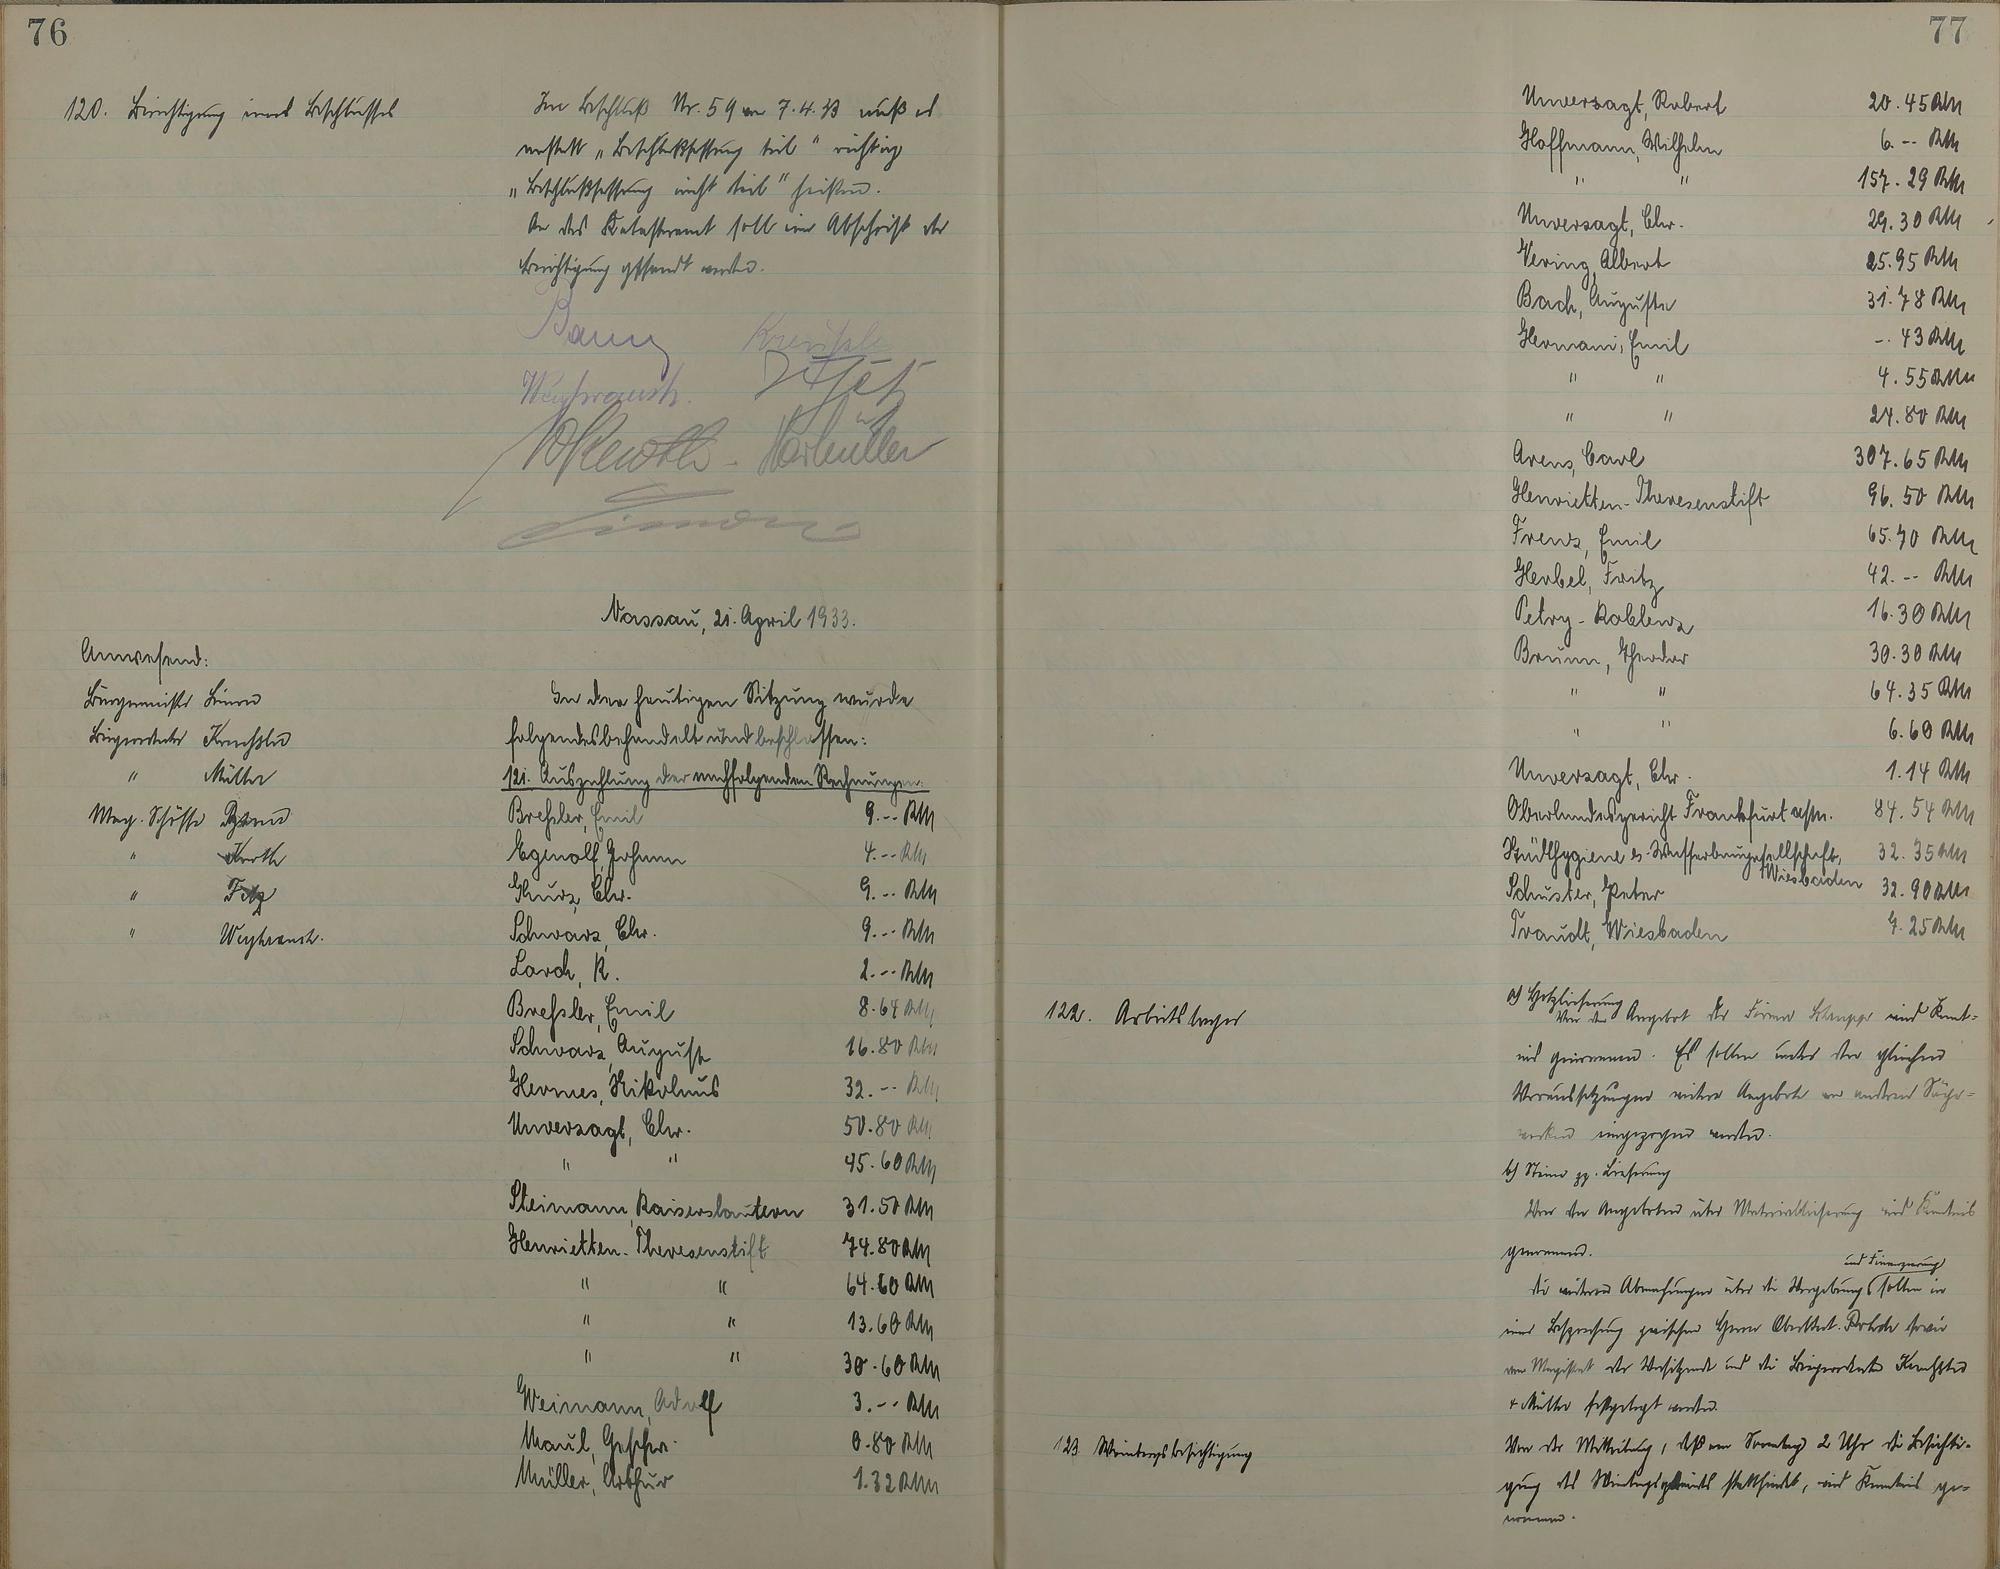 76
120. Berichtigung eines Beschlusses
Im Beschluß Nr. 59 vom 7.4.33 muß es
anstatt „Beschlußfassung teil" richtig
„Beschlußfassung nicht teil" heißen.
An das Katasteramt soll eine Abschrift der
Berichtigung gesandt werden.
Weyhrauch.
Nassau, 21. April 1933.
Anwesend:
Bürgermeister
Beigeordneter
" Müller
Mag. Schöffe
"
" Fetz
" Weyhrauch.
In der heutigen Sitzung wurde
folgendes behandelt und beschlossen:
121. Auszahlung der nachfolgenden Rechnungen:
Breßler, Emil 9.-- RM
Egenolf, Johann 4.-- RM
Kurz, Chr. 9.-- RM
Schwarz, Chr. 9.-- RM
Lorch, K. 2.-- RM
Breßler, Emil 8.64 RM
Schwarz, August 16.80 RM
Hermes, Nikolaus 32.-- RM
Unverzagt, Chr. 50.80 RM
" " 45.60 RM
Steimann, Kaiserslautern 31.50 RM
Henrietten-Theresenstift 74.80 RM
" " 64.60 RM
" " 13.60 RM
" " 30.60 RM
Weimann, Adolf 3.-- RM
Maul, Geschw. 0.80 RM
Müller, Arthur 1.32 RM
77
Unverzagt, Robert 20.45 RM
Hoffmann, Wilhelm 6.-- RM
" " 157.29 RM
Unverzagt, Chr. 29.30 RM
Vering, Albert 25.95 RM
Bach, Auguste 31.78 RM
Hermani, Emil -.43 RM
" " 4.55 RM
" " 24.80 RM
Arens, Carl 307.65 RM
Henrietten-Theresenstift 96.50 RM
Frenz, Emil 65.70 RM
Herbel, Fritz 42.-- RM
Petry-Koblenz 16.30 RM
Brunn, Theodor 30.30 RM
" " 64.35 RM
" " 6.60 RM
Unverzagt, Chr. 1.14 RM
Oberlandesgericht Frankfurt a/M. 84.54 RM
Städthygiene & Wasserbaugesellschaft, 32.35 RM
Wiesbaden
Schuster, Peter 32.90 RM
Traudt, Wiesbaden 7.25 RM
122. Arbeitslager
a) Holzlieferung
Von dem Angebot der Firma wird Kennt-
nis genommen. Es sollen unter den gleichen
Voraussetzungen weitere Angebote von anderen Säge-
werken eingezogen werden.
b) Steine pp. Lieferung
Von den Angeboten über Materiallieferung wird Kenntnis
genommen.
und Finanzierung
Die weiteren Abmachungen über die Vergebung sollen in
einer Besprechung zwischen Herrn sowie
vom Magistrat der Vorsitzende und die Beigeordneten
& Müller festgelegt werden.
123 Weinbergsbesichtigung
Von der Mitteilung, daß am Sonntag 2 Uhr die Besichti-
gung des Weinbergsgeländes stattfindet, wird Kenntnis ge-
nommen.